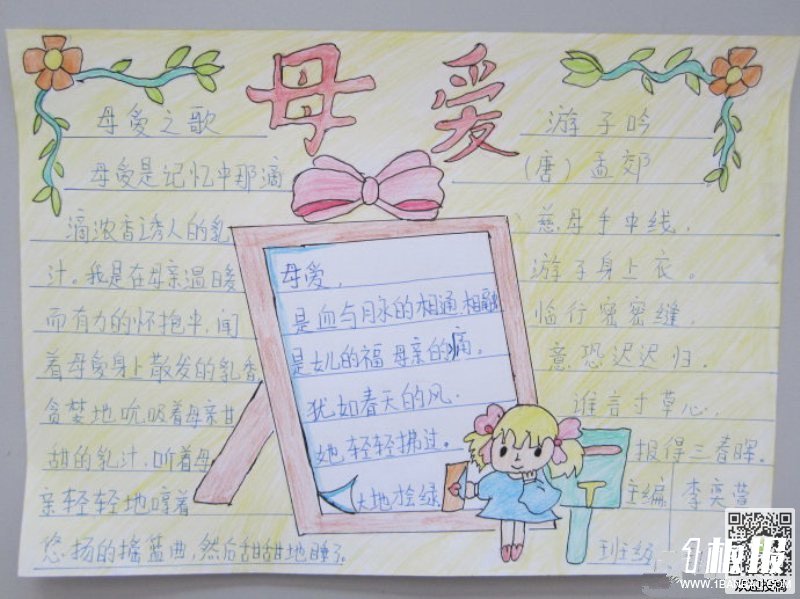 母爱
母爱之歌
母爱是记忆中那滴
滴浓香诱人的乳
汁。我是在母亲温暖
而有力的怀抱中,闻
着母爱身上散发的乳香
贪婪地吮吸着母亲甘
甜的乳汁,听着母
亲轻轻地哼着
悠扬的摇篮曲,然后甜甜地睡了
母爱,
是血与脉的相通相融
是女儿的福 母亲的痛。
犹如春天的风.
她轻轻拂过。
大地桧绿
游子吟
(唐)孟郊
慈母手中线,
游子身上衣。
临行密密缝,
意恐迟迟归.
谁言寸草心,
报得三春晖。
主编 李奕萱
班级
1板报
WWW.1BANBAO.COM
欢迎投稿